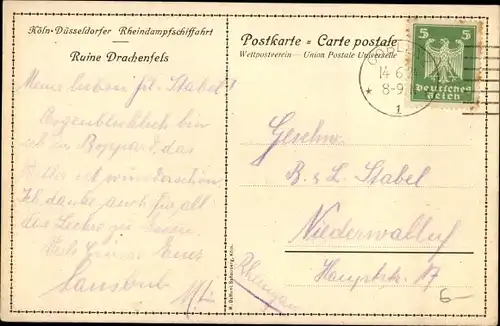 Köln-Düsseldorfer Rheindampfschiffahrt
Ruine Drachenfels
Postkarte = Carte postale
Weltpostverein — Union Postale Universelle
14.6.
8-9
1
5 5
Deutsches
Reich
Stabel!
Augenblicklich bin
ich in Boppard, das
Wetter ist wunderschön.
Ich danke auch für all
das Leckere zu
Geschw.
B. & L. Stabel
Niederwalluf
Hauptstr. 17
Rheingau
6-